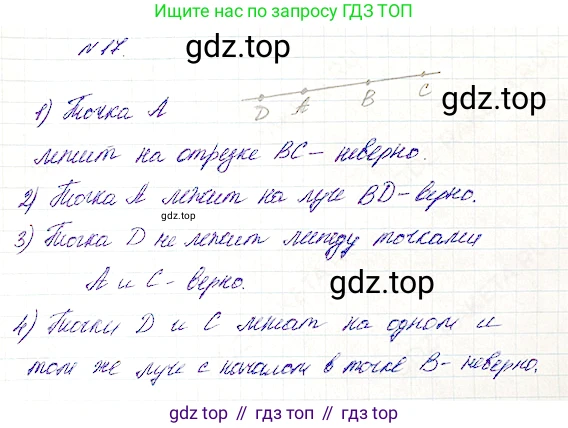 Ищите нас по запросу
ГДЗ ТОП
N 17.
gdz.top
D A B C
gdz.top
1) Точка А
лежит на отрезке BC – неверно.
2) Точка А лежит на луче BD – верно.
gdz.top
3) Точка D не лежит между точками
А и С – верно.
gdz.top
4) Точки D и С лежат на одном и
том же луче с началом в точке В – неверно.
gdz.top
gdz top // гдз топ // гдз.топ